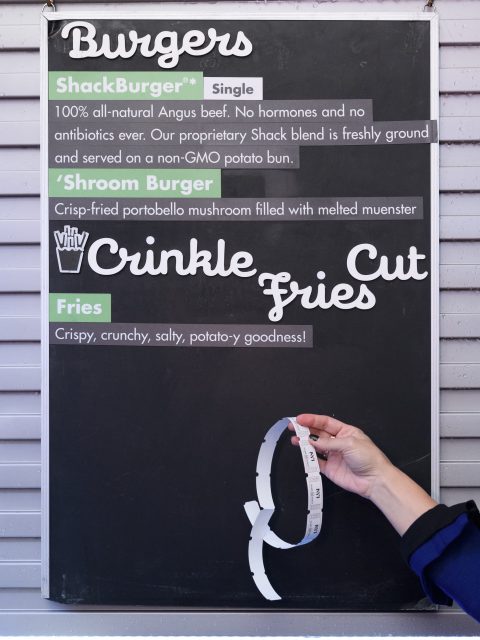 Burgers
ShackBurger®* Single
100% all-natural Angus beef. No hormones and no
antibiotics ever. Our proprietary Shack blend is freshly ground
and served on a non-GMO potato bun.
'Shroom Burger
Crisp-fried portobello mushroom filled with melted muenster
Crinkle Cut
Fries
Fries
Crispy, crunchy, salty, potato-y goodness!